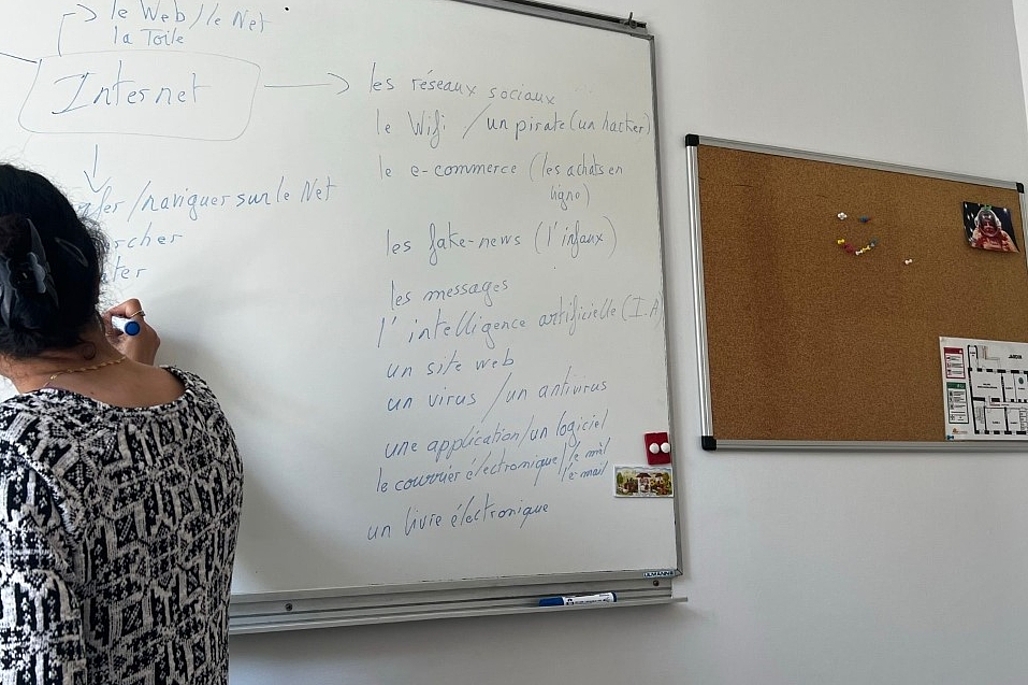 le Web/le Net
la Toile
Internet
les réseaux sociaux
le Wifi /un pirate (un hacker)
le e-commerce (les achats en
ligno)
/naviguer sur le Net
les fake-news (l'infaux)
les messages
l'intelligence artificielle (I.A)
un site web
un virus /un antivirus
une application/un logiciel
le courrier électronique/le mail
l'e-mail
un livre électronique
JARDIN
ULMANN